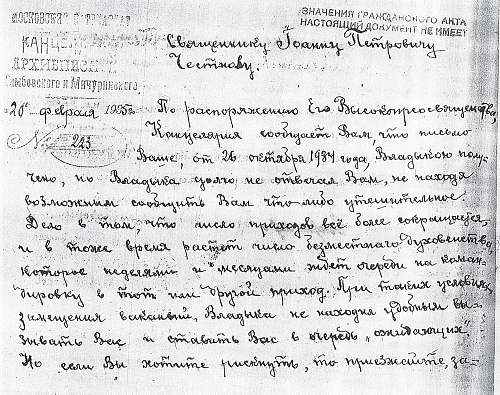 МОСКОВСКИЙ ПАТРИАРХАТ
КАНЦЕЛЯРИЯ
АРХИЕПИСКОПА
Тамбовского и Мичуринского
20 февраля 1935 г.
№ 243
ЗНАЧЕНИЯ ГРАЖДАНСКОГО АКТА
НАСТОЯЩИЙ ДОКУМЕНТ НЕ ИМЕЕТ
Священнику Іоанну Петровичу
Честнову.
По распоряжению Его Высокопреосвященства,
Канцелярия сообщает Вам, что письмо
Ваше, от 26 октября 1934 года, Владыкою полу-
чено, но Владыка долго не отвечал Вам, не находя
возможным сообщить Вам что-либо утешительное.
Дело в том, что число приходов всё более сокращается,
и в тоже время растет число безместного духовенства,
которое неделями и месяцами ждет очереди на коман-
дировку в тот или другой приход. При таких условиях
замещения вакансий, Владыка не находил удобным вы-
зывать Вас и ставить Вас в очередь „ожидающих".
Но если Вы хотите рискнуть, то приезжайте, за-